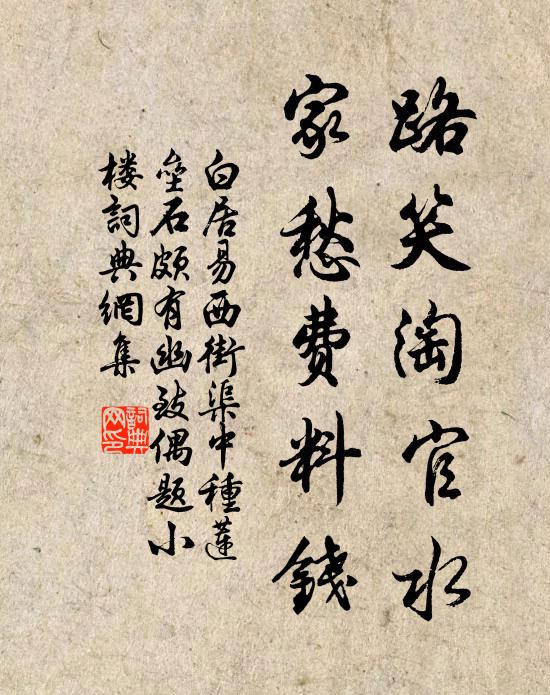 路笑淘官水
家愁費料錢
白居易西街渠中種蓮
壘石頗有幽致偶題小
楼詞典網集
詞典网印